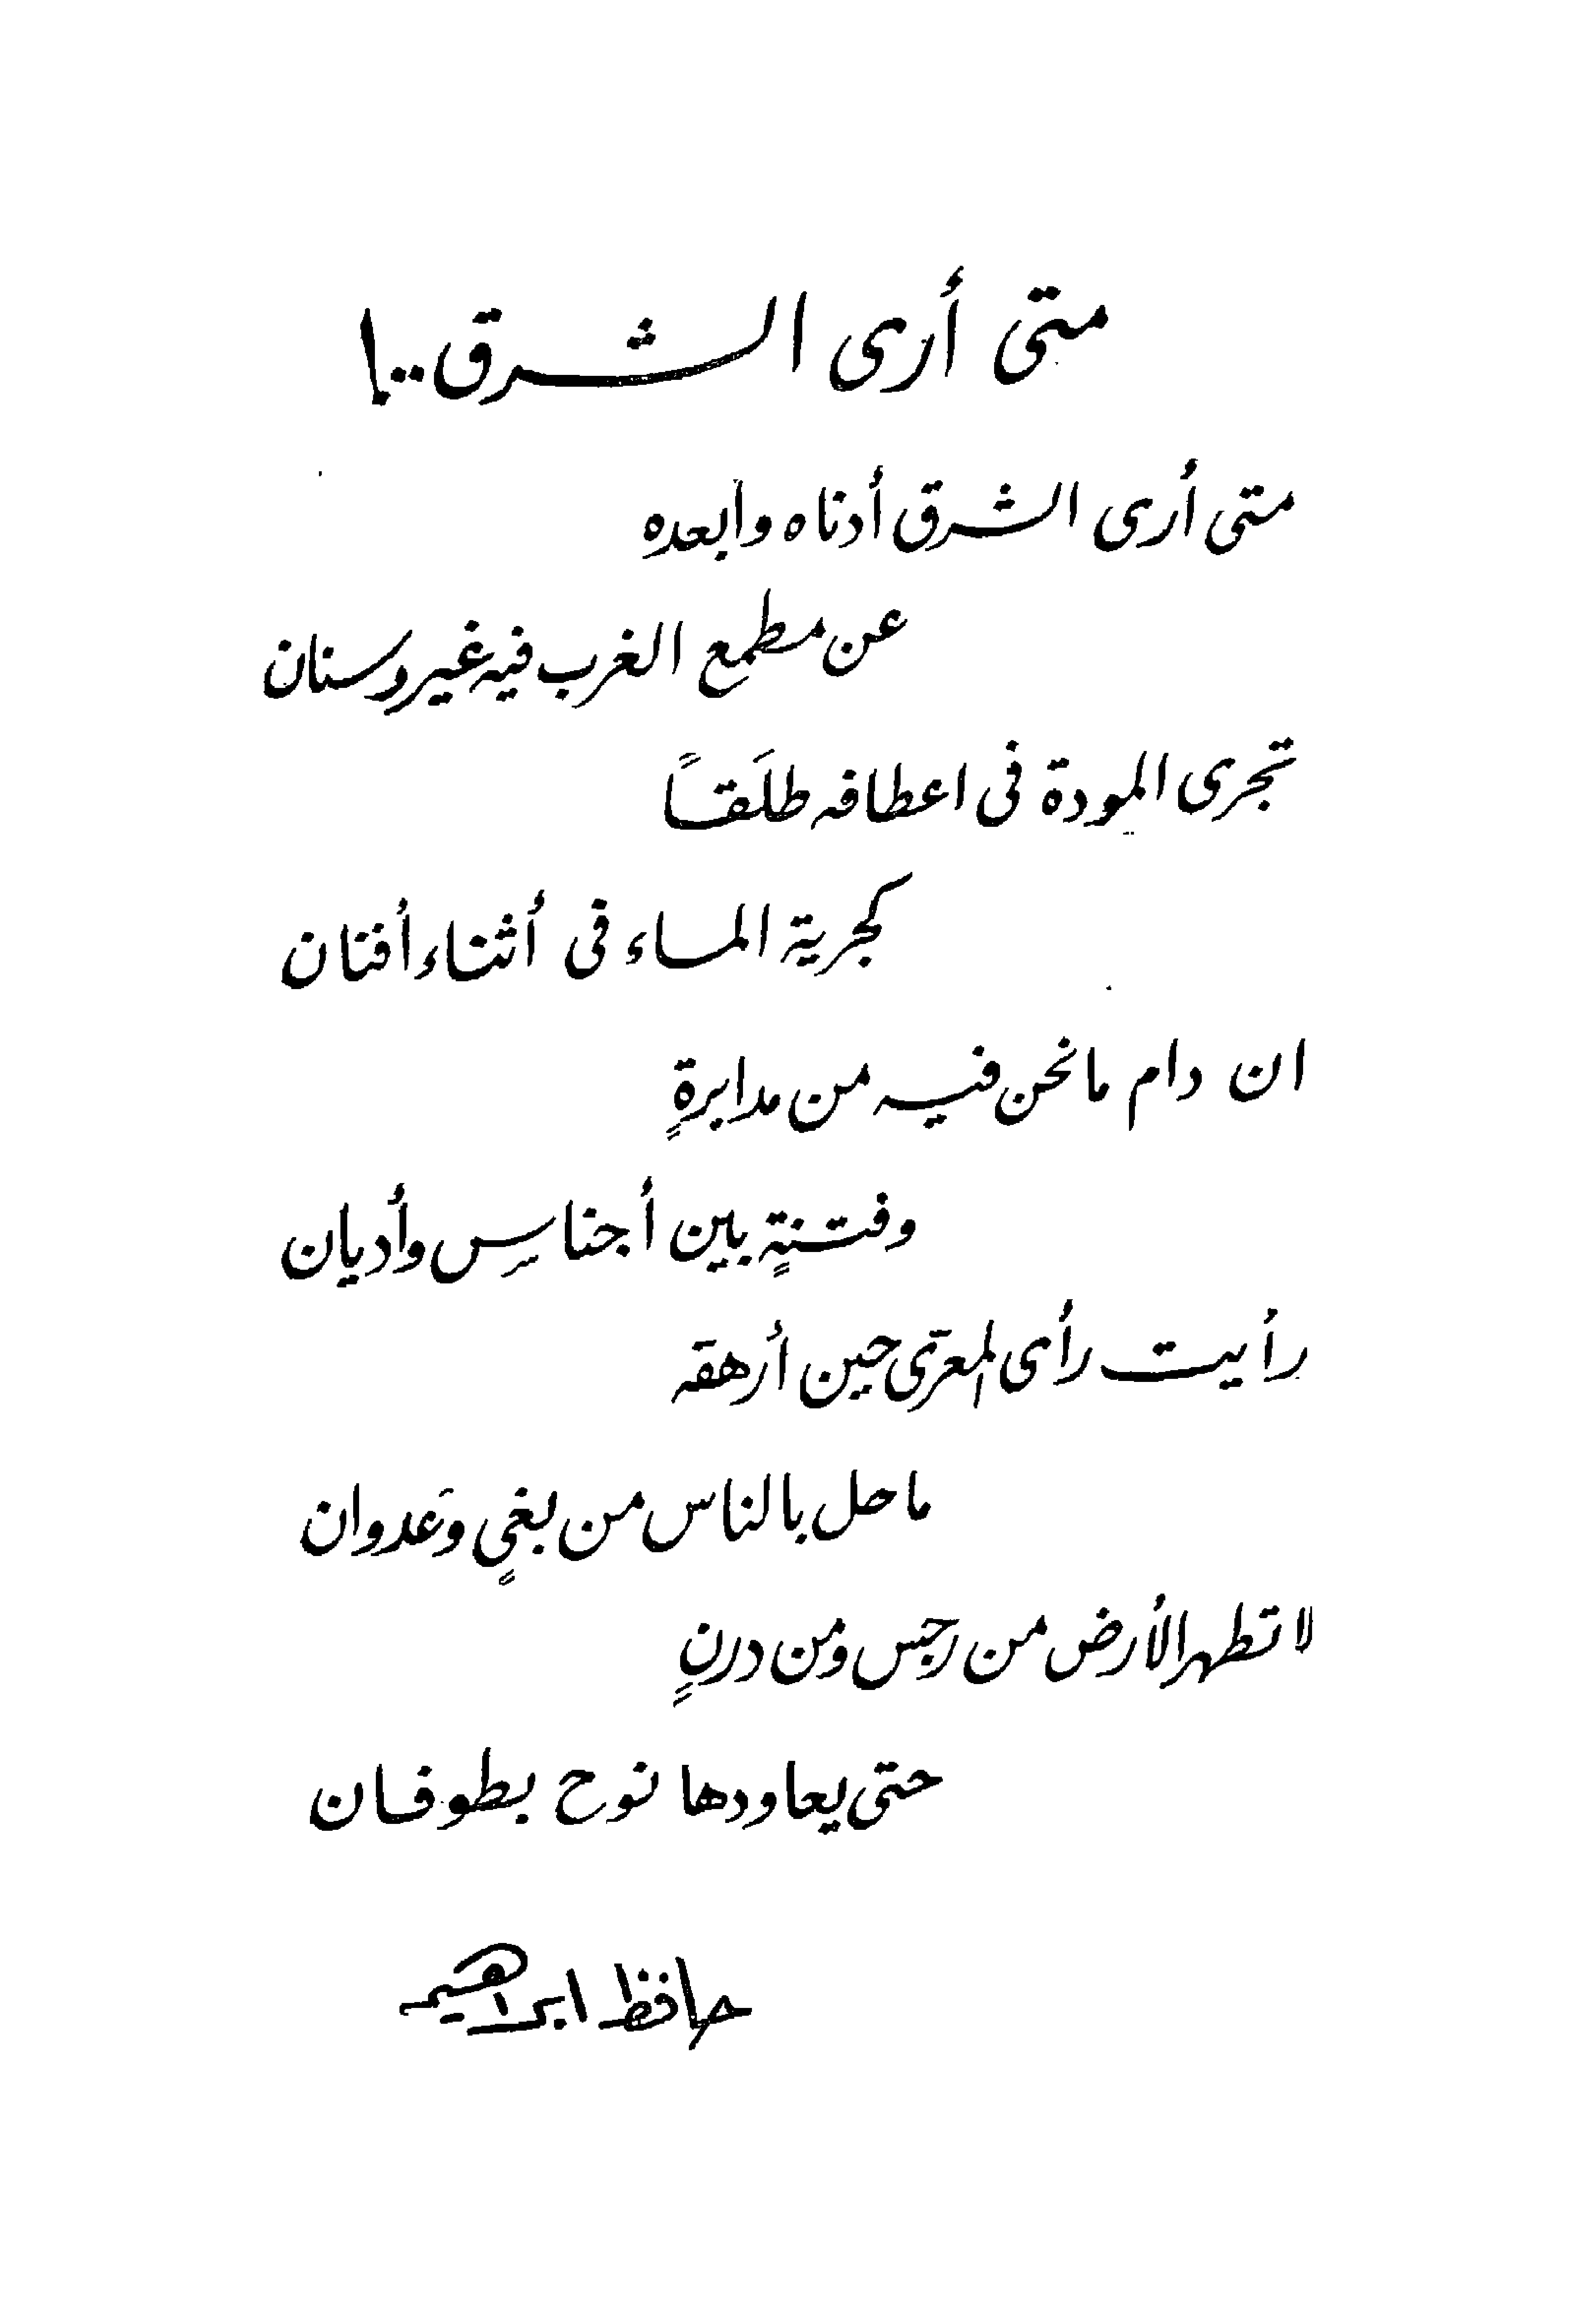 متى أرى الشرق..!
متى أرى الشرق أدناه وأبعده
عن مطمع الغرب فيه غير وسنان
تجرى المودة فى اعطافه طلَقاً
كجرية الماء فى أثناء أفنان
ان دام ما نحن فيه من مدابرةٍ
وفتنةٍ بين أجناسِ وأديان
رأيت رأى المعرّى حين أرهقه
ما حل بالناس من بغيٍ وعَدوان
لا تطهر الأرض من رجس ومن درنٍ
حتى يعاودها نوح بطوفان
حافظ ابراهيم